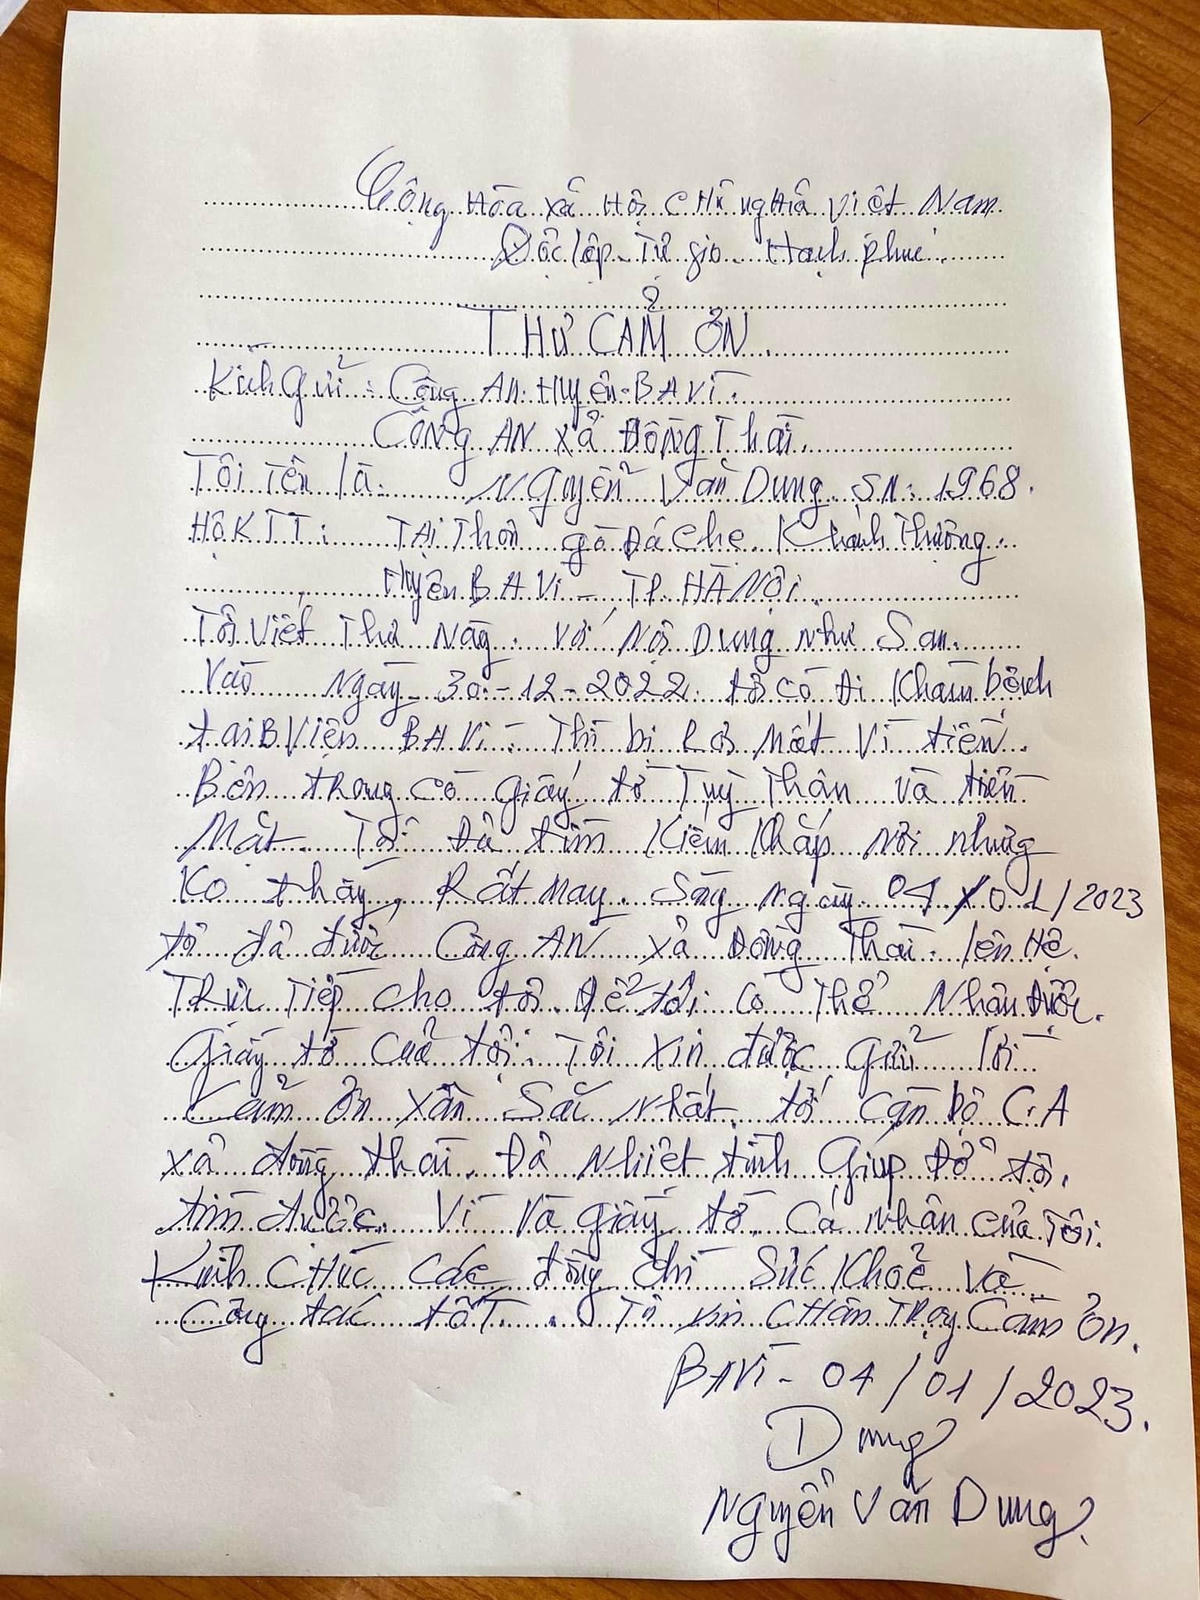 Cộng Hòa xã Hội CHủ nghĩa Việt Nam
Độc lập - Tự do - Hạnh phúc
THƯ CẢM ƠN
Kính Gửi : Công AN Huyện BA Vì.
CÔNG AN xã Đồng Thái.
Tôi Tên là : Nguyễn Văn Dung SN: 1968.
Hộ KTT : TẠi Thôn gò Đá Chẹ Khánh Thượng
Huyện BA Vì - TP. HÀ NỘi.
Tôi Viết Thư Này với Nội Dung như Sau.
Vào Ngày 30-12-2022 tôi có đi Khám bệnh
tại B Viện BA Vì. Thì bị Rơi Mất Ví tiền.
Bên trong có Giấy tờ Tuỳ Thân và tiền
Mặt. Tôi Đã tìm Kiếm Khắp Nơi nhưng
Ko thấy, Rất May Sáng Ngày 04/01/2023
tôi đã được Công AN xã Đồng Thái lên Hệ
Trực Tiếp cho tôi để tôi có Thể Nhận Được.
Giấy tờ của tôi. Tôi xin được gửi lời
Cảm Ơn xân Sắc Nhất tới Cán bộ C.A
xã đồng thái. Đã Nhiệt tình Giúp Đỡ tôi.
tìm được Ví Và Giấy tờ Cá nhân của Tôi.
Kính CHúc các đồng chí Sức Khoẻ Và
Công tác tốT. Tôi xin CHân Thạy Cảm Ơn.
BA Vì - 04/01/2023.
Dung
Nguyễn Văn Dung